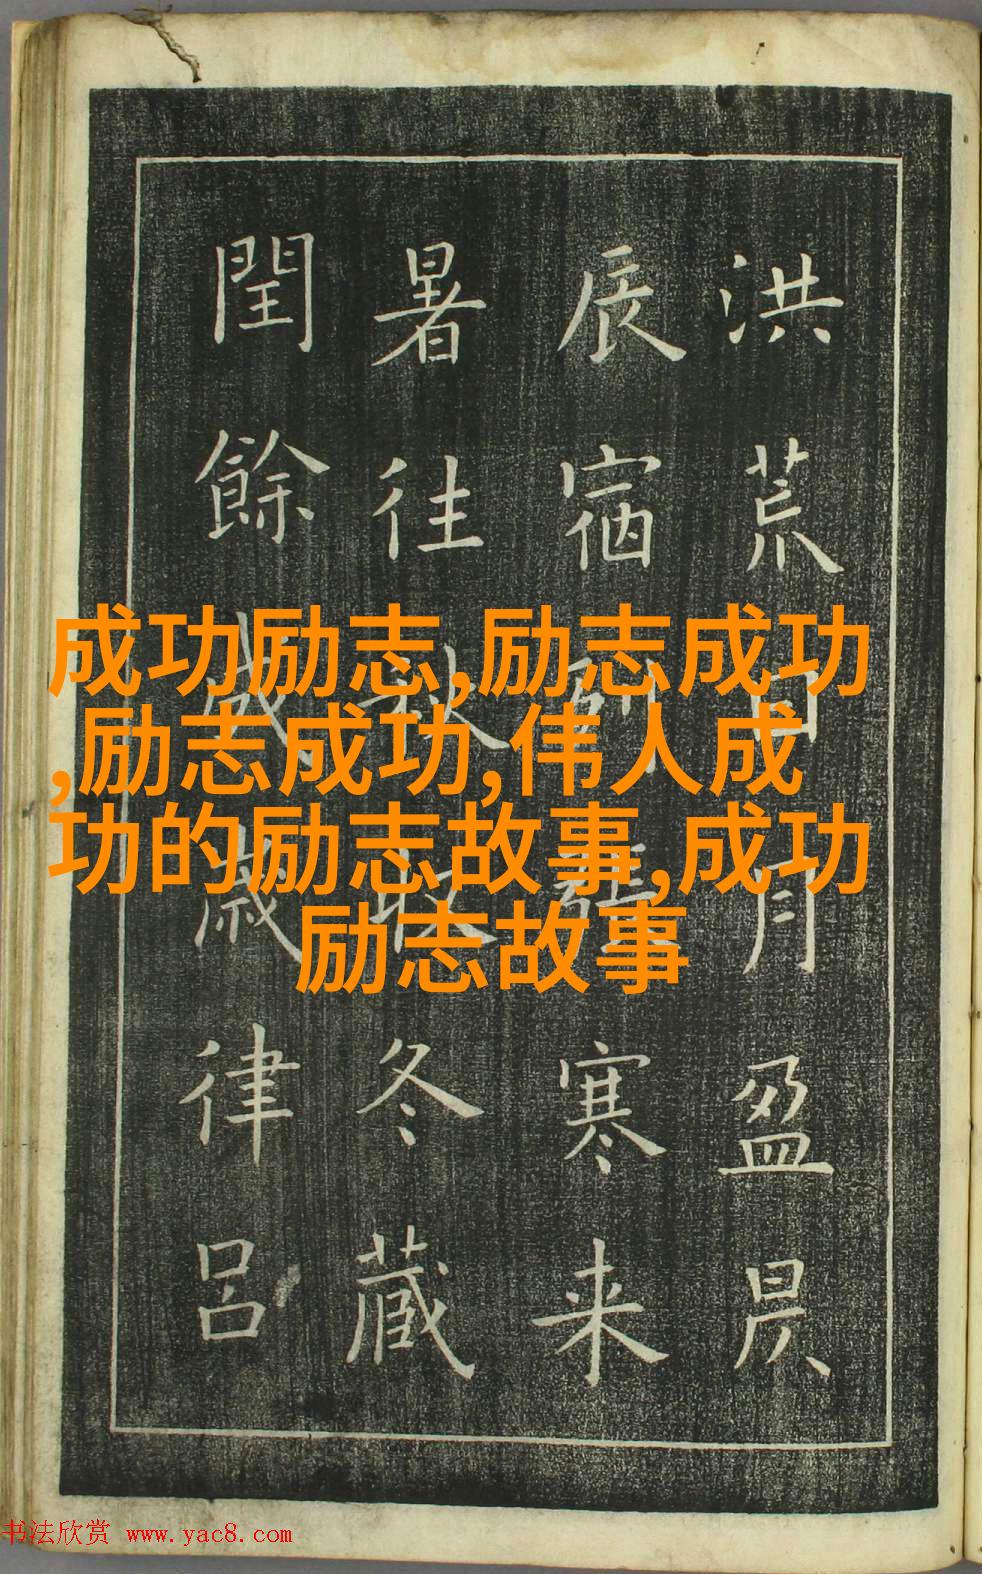 洪荒日月盈昃
辰宿列張寒来
暑往秋收冬藏
閏餘成歲律呂
成功励志,励志成功
,励志成功,伟人成
功的励志故事,成功
励志故事
书法欣赏 www.yac8.com